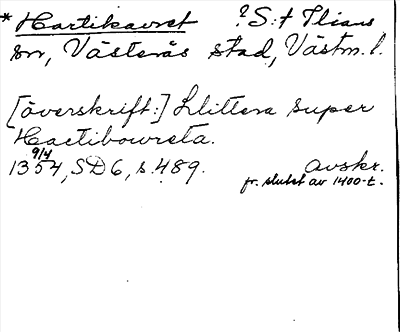 * Hartikavret ? S:t Ilians
sn, Västerås stad, Västm. l.
[överskrift:] Littera super
Hactibowreta.
9/4
1354, SD 6, s. 489. Avskr.
fr. slutet av 1400-t.